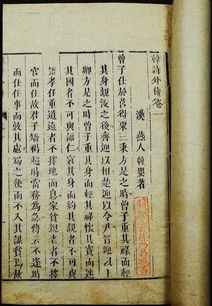 韓詩外傳卷一
漢 燕人韓嬰著
曾子仕於莒得粟三秉方是之時曾子重其祿而輕
其身親沒之後齊迎以相楚迎以令尹晉迎以上
卿方是之時曾子重其身而輕其祿懷其寶而迷
其國者不可與語仁窘其身而約其親者不可與
語孝任重道遠者不擇地而息家貧親老者不擇
官而仕故君子矯褐趨時當務為急傳云不逢時
而仕任事而敦其慮為之使而不入其謀貧焉故